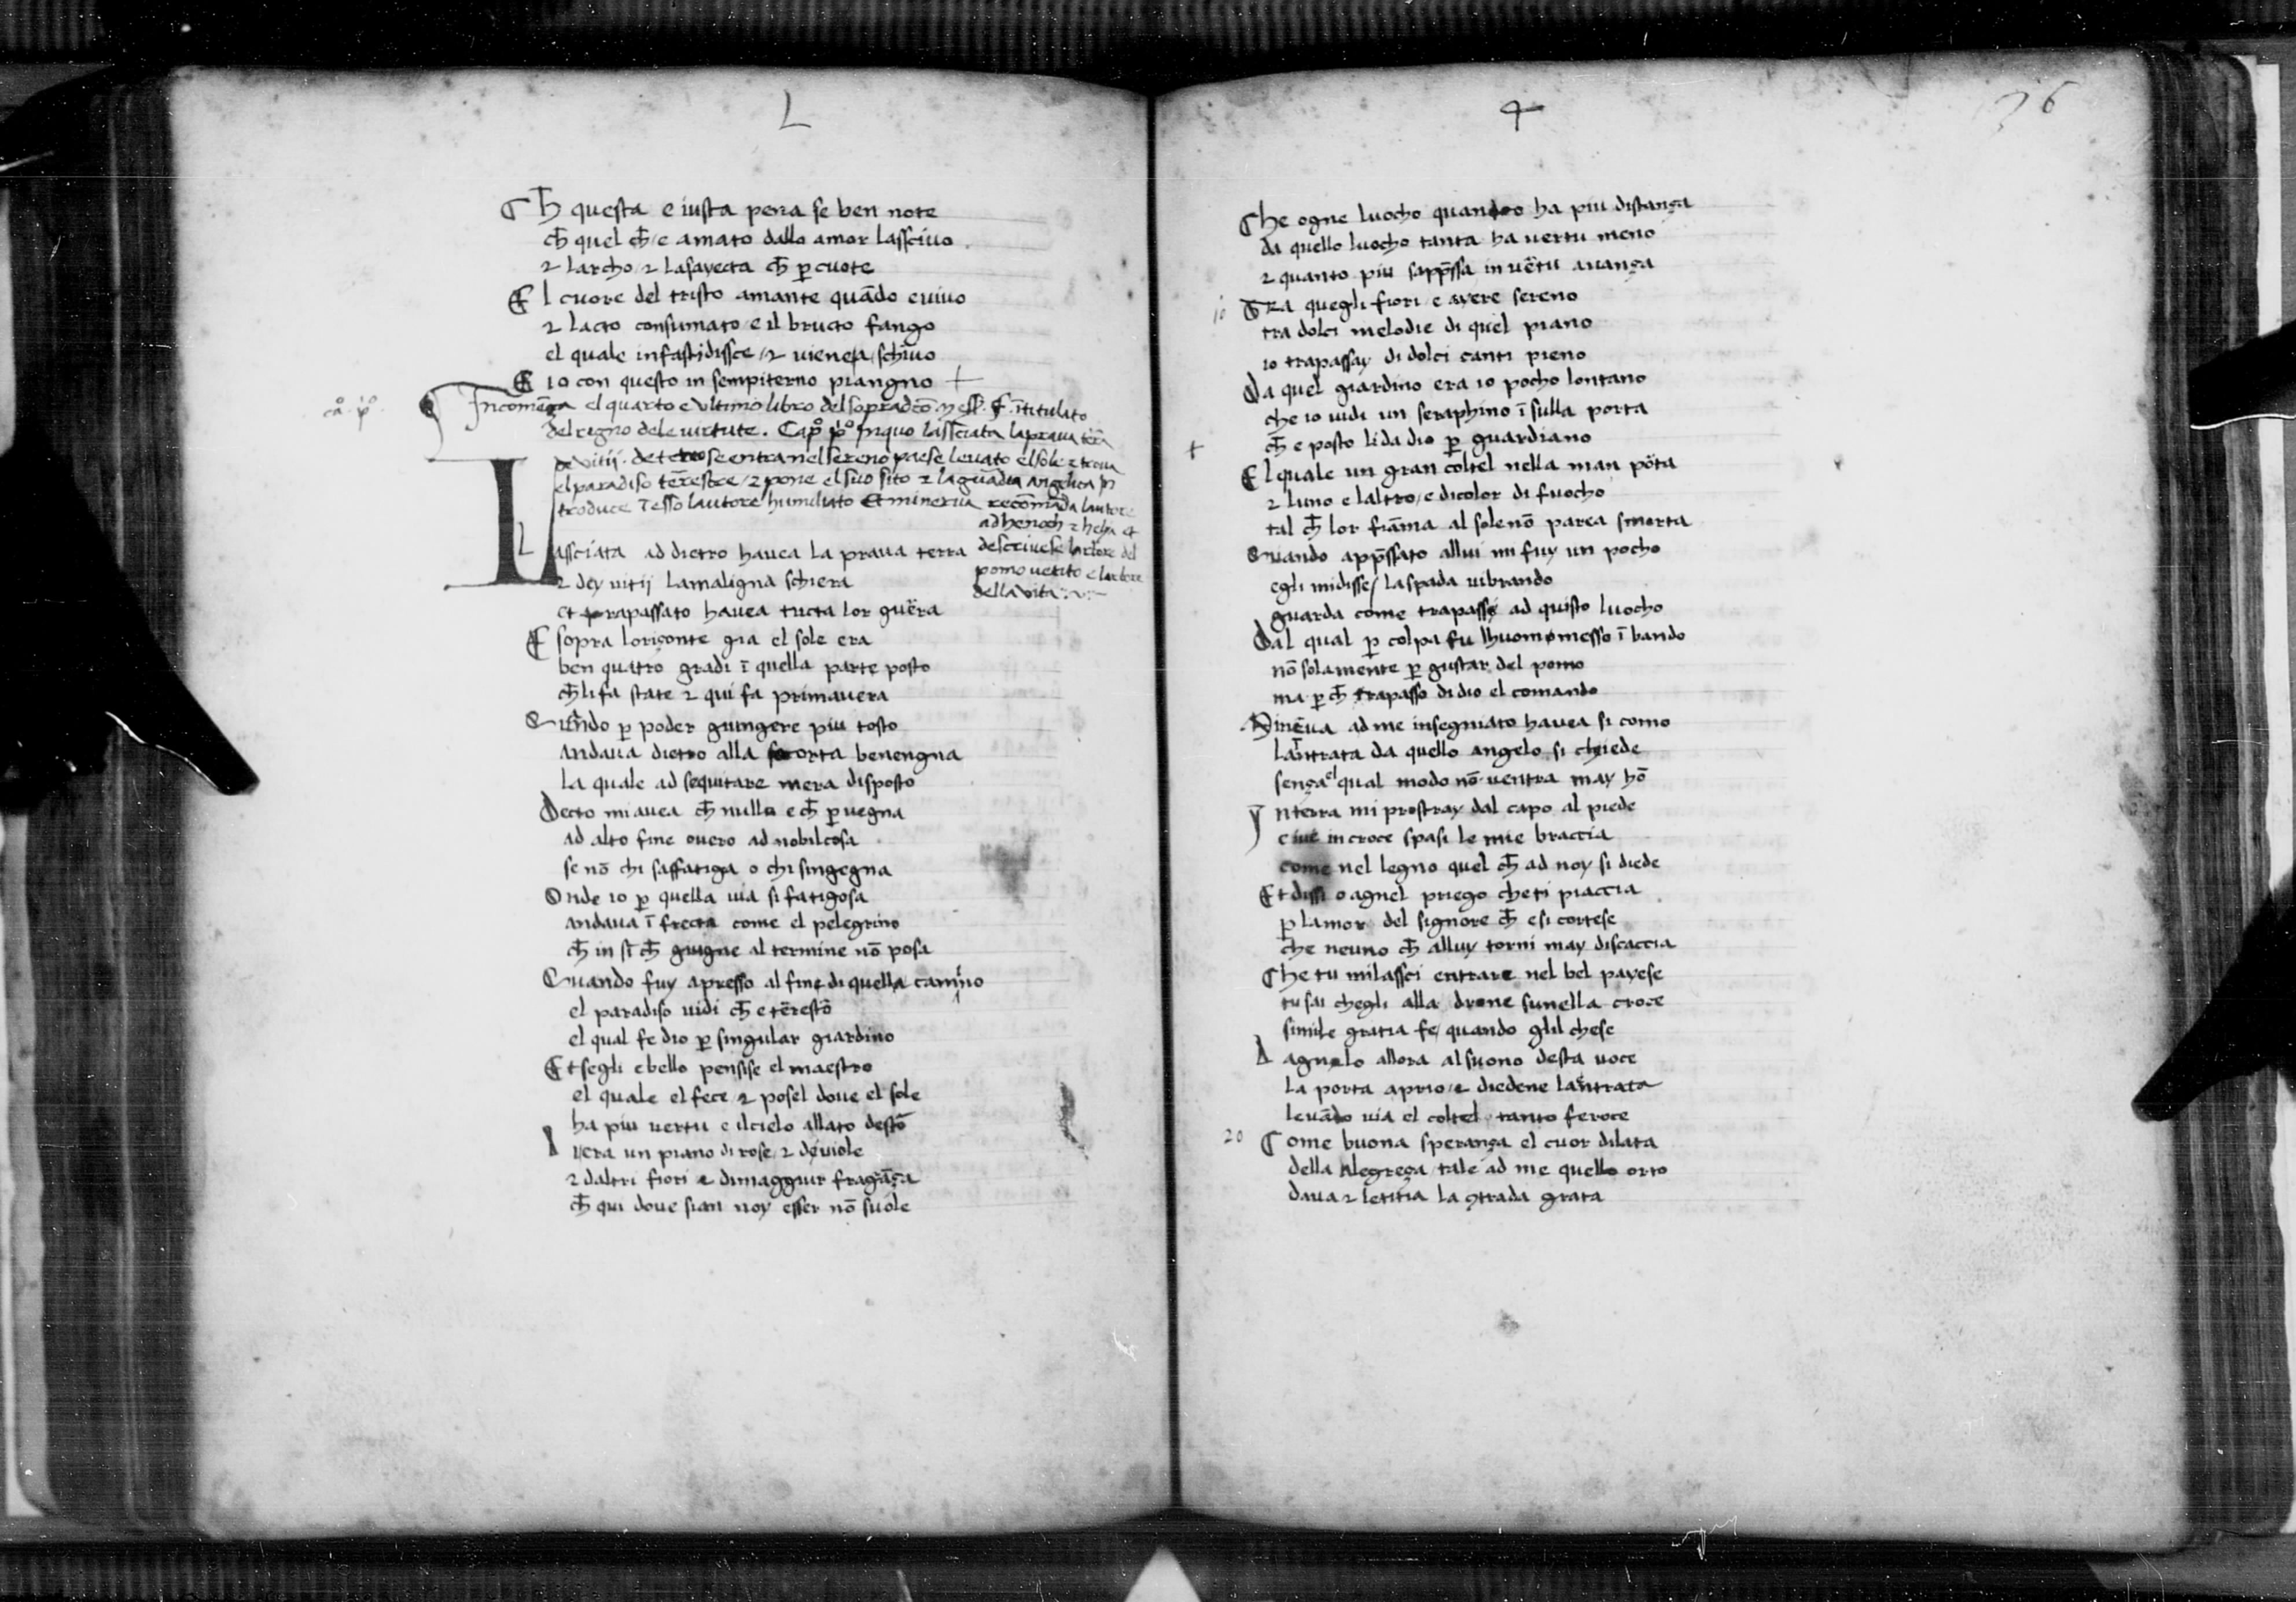 L
Ch̄ questa e iusta pena se ben note
ch̄ quel ch̄ e amato dallo amor lasscivo
⁊ larcho ⁊ lasayecta ch̄ ꝑcuote
El cuore del tristo amante quādo e vivo
⁊ lacto consumato e il bructo fango
el quale infastidissce ⁊ viene a schivo
E io con questo in sempiterno piangno +
caº. pº.
Incomēça el quarto e ultimo libro del sopradcō. M ess̄. F. ītitulato
del regno dele virtute. Capº pº In quo lassciata la prava terā
de vitij. se entra nel sereno paese levato el sole ⁊ trova
el paradiso terēstre ⁊ pone el suo sito ⁊ la guādia angelica In
troduce ī esso lautore humiliato Et minerva recōmāda lautore
ad henoch ⁊ helya et
descrivese larbore del
pomo vetito e larbore
della vita
Lassciata ad dietro havea la prava terra
⁊ dey vitij la maligna schiera
et trapassato havea tucta lor guēra
E sopra loriçonte gia el sole era
ben quatro gradi ī quella parte posto
ch̄ li fa state ⁊ qui fa primavera
Quādo ꝑ poder giungere piu tosto
andava dietro alla scorta benengna
la quale ad sequitare mera disposto
Decto mi avea ch̄ nullo e ch̄ ꝑvegna
ad alto fine overo ad nobil cosa
se nō chi saffatiga o chi singegna
Onde io ꝑ quella via si fatigosa
andava ī frecta come el pelegrino
ch̄ in sī ch̄ giugne al termine nō posa
Quando fuy apresso al fine di quella camino
el paradiso vidi ch̄ e terēstō
el qual fe dio ꝑ singular giardino
Et segli e bello pensise el maestro
el quale el fece ⁊ posel dove el sole
ha piu vertu e il cielo allato destō
Ivera un piano di rose ⁊ de viole
⁊ daltri fiori e di maggiur fragāça
ch̄ qui dove sian noy esser nō suole
4
76
Che ogne luocho quando ha piu distança
da quello luocho tanta ha vertu meno
⁊ quanto piu sapp̄ssa in vētu avança
10
Tra quegli fiori e ayere sereno
tra dolci melodie di quel piano
io trapassay di dolci canti pieno
Da quel giardino era io pocho lontano
che io vidi un seraphino ī sulla porta
+
ch̄ e posto li da dio ꝑ guardiano
El quale un gran coltel nella man pōta
⁊ luno e laltro e di color di fuocho
tal ch̄ lor fiāma al sole nō parea smorta
Quando app̄ssato allui mi fuy un pocho
egli mi disse la spada vibrando
guarda come trapassi ad quisto luocho
Dal qual ꝑ colpa fu lhuomo messo ī bando
nō solamente ꝑ gustar del pomo
ma ꝑ ch̄ trapasso di dio el comando
Minēva ad me insegniato havea si como
lantrata da quello angelo si chiede
sença el qual modo nō ventra may hō
Yn terra mi prostray dal capo al piede
e ive in croce spasi le mie braccia
come nel legno quel ch̄ ad noy si diede
Et dissi o agnel priego che ti piaccia
ꝑ lamor del signore ch̄ e si cortese
che neuno ch̄ alluy torni may discaccia
Che tu mi lassci entrare nel bel payese
tu sai chegli alla drone sunella croce
simile gratia fe quando glil chese
Lagnelo allora al suono desta voce
la porta aprio ⁊ diedene lantrata
levādo via el coltel tanto feroce
20
Come buona sperança el cuor dilata
della alegreça tale ad me quello orto
dava ⁊ letitia la ꝯtrada grata